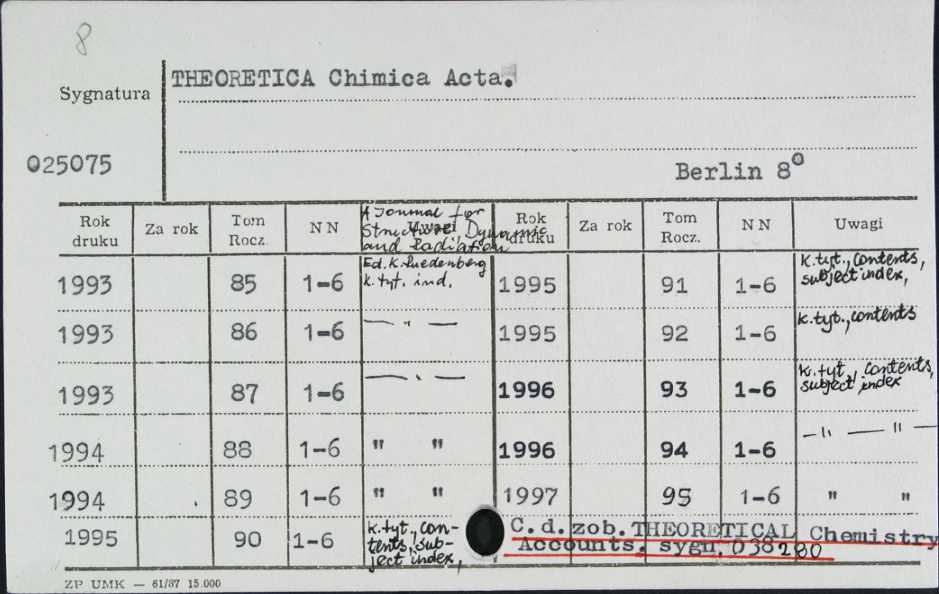 8
Sygnatura
THEORETICA Chimica Acta.
025075
Berlin 8°
Rok druku Za rok Tom Rocz. NN Uwagi Rok druku Za rok Tom Rocz. NN Uwagi
A Journal for
Structure, Dynamic
and Radiation
1993 85 1-6 Ed. K. Ruedenberg k. tyt. ind. 1995 91 1-6 k. tyt., contents, subject index,
1993 86 1-6 — " — 1995 92 1-6 k. tyt., contents
1993 87 1-6 — " — 1996 93 1-6 k. tyt., contents, subject index
1994 88 1-6 " " 1996 94 1-6 — " — " —
1994 89 1-6 " " 1997 95 1-6 " "
1995 90 1-6 k. tyt., con-tents, sub-ject index,
C.d. zob. THEORETICAL Chemistry
Accounts. sygn. 038280
ZP UMK — 61/87 15.000